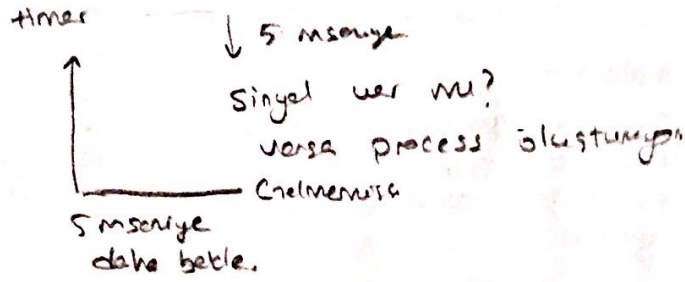 timer
↓ 5 msaniye
Sinyal var mı?
varsa process oluşturuyor
Gelmemişse
5 msaniye
daha bekle.